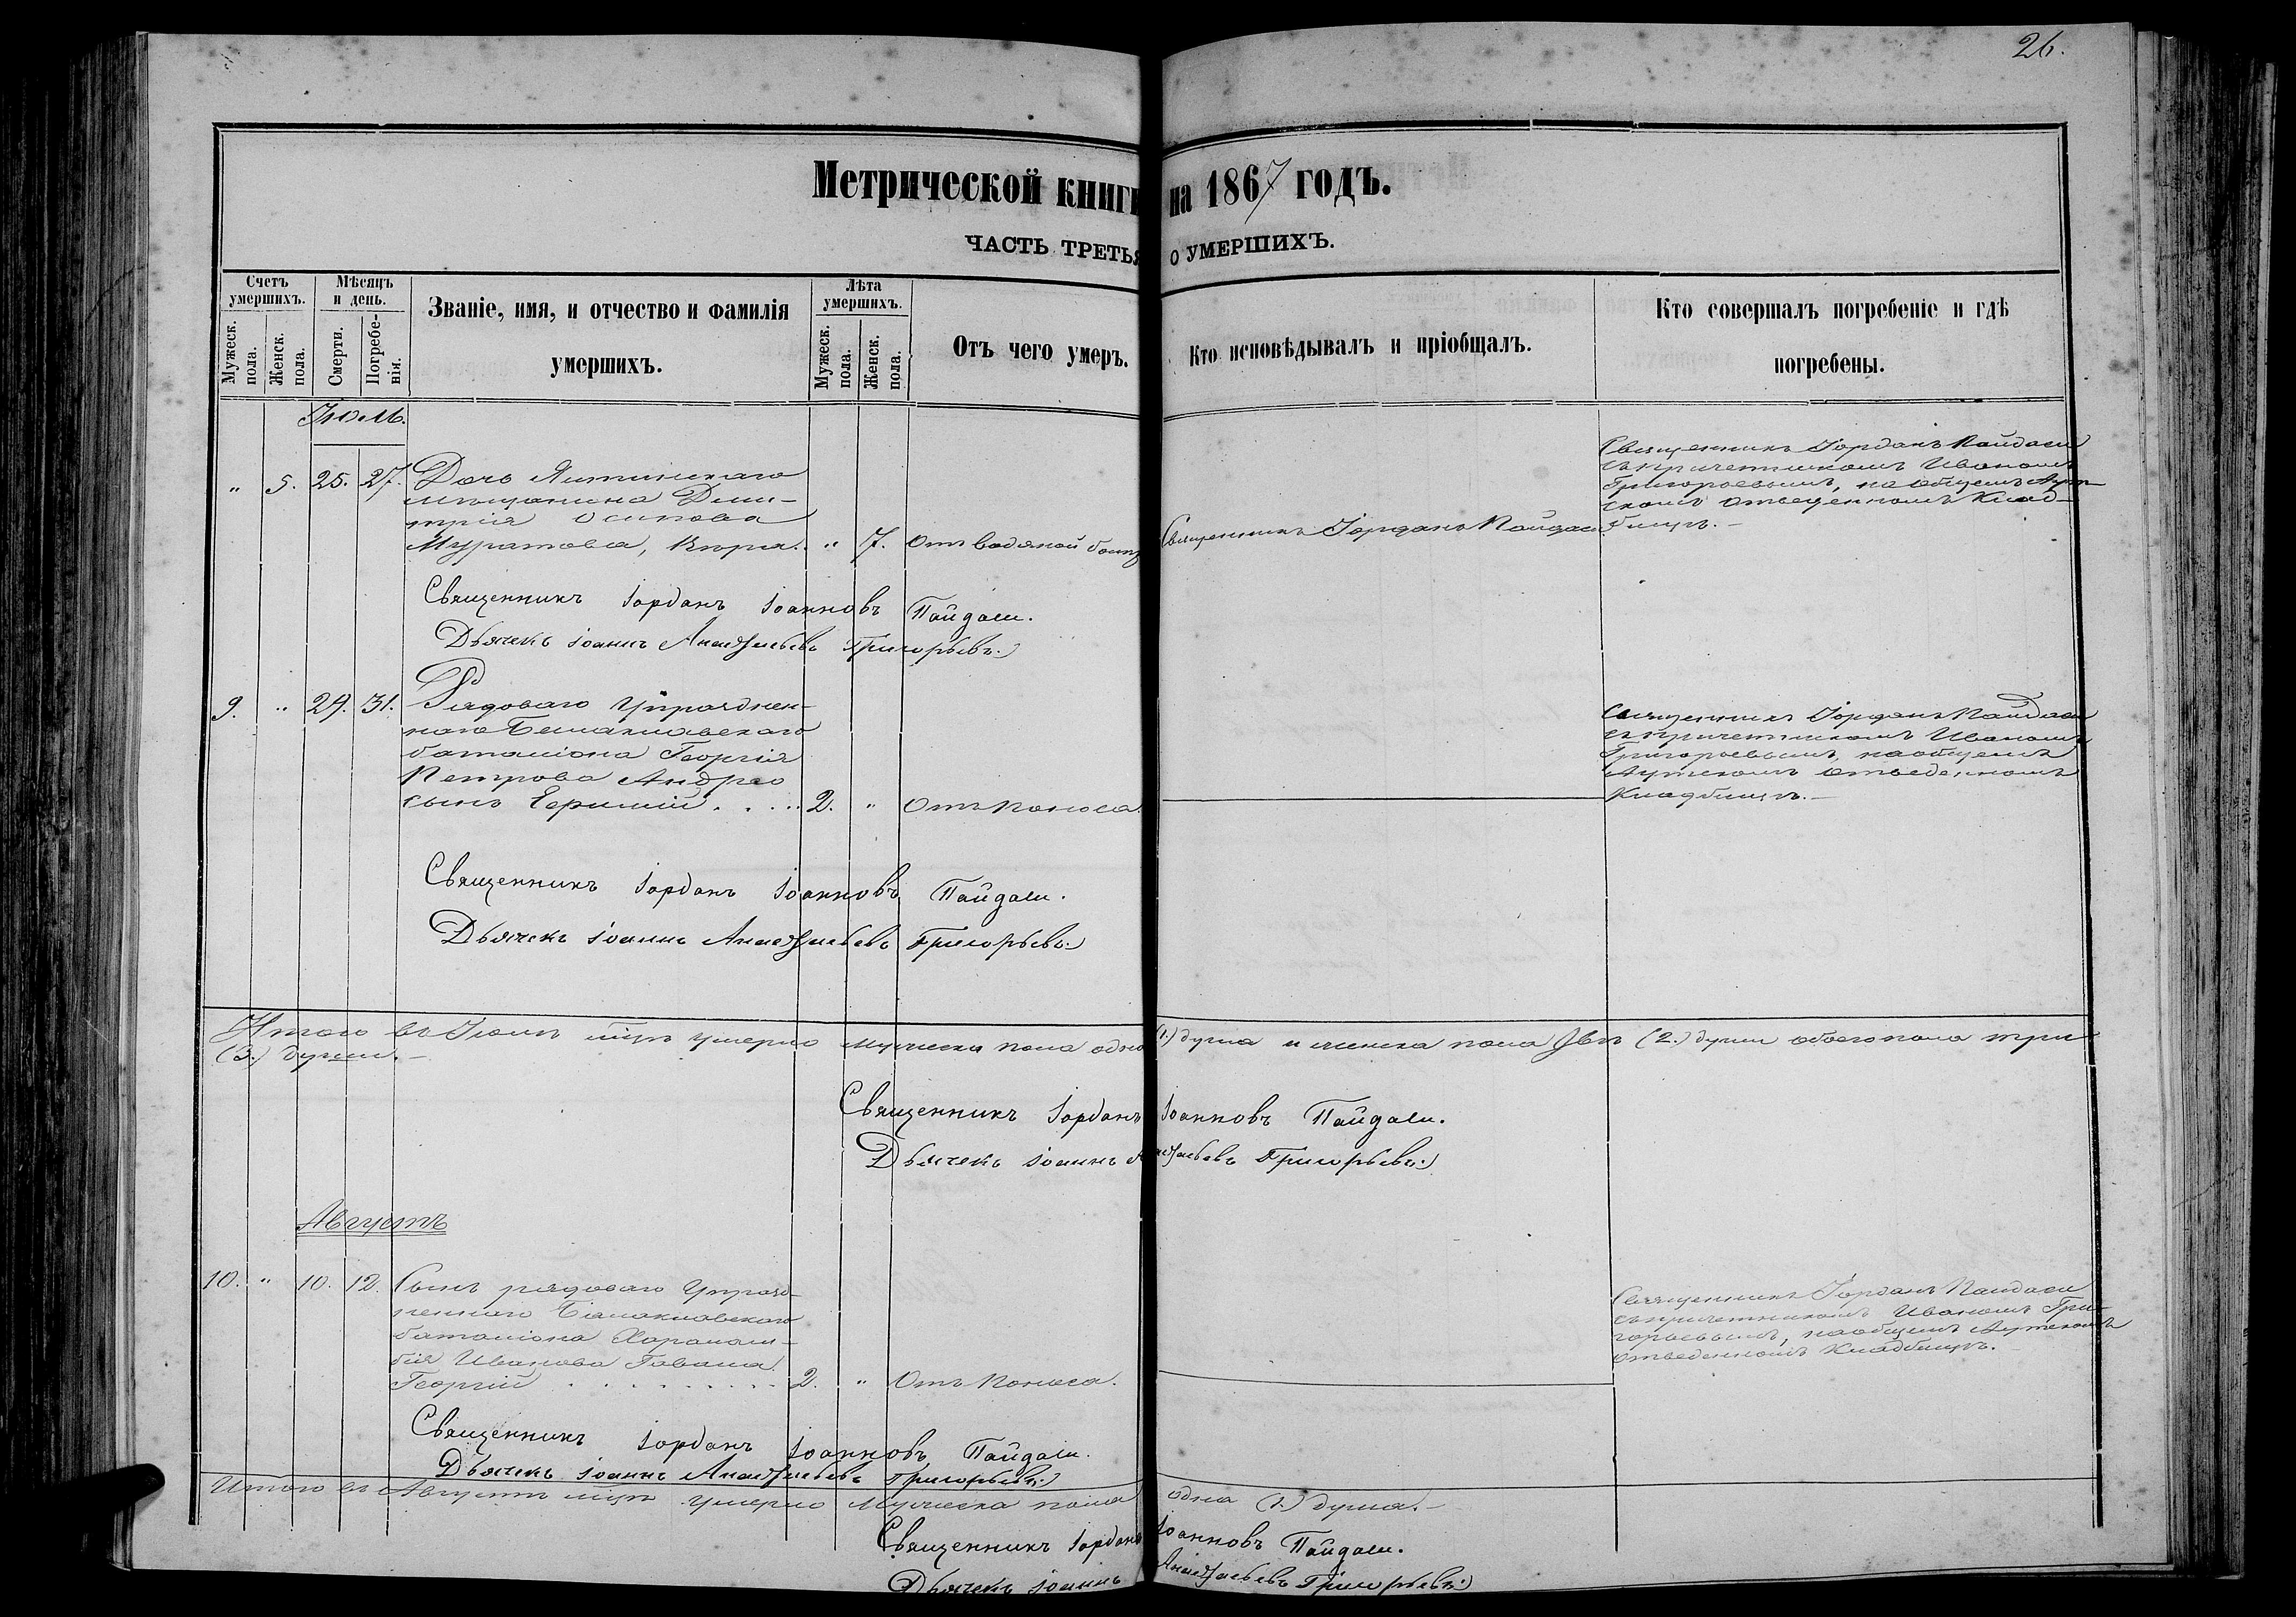 26.
Метрической книги на 1867 годъ.
ЧАСТЬ ТРЕТЬЯ О УМЕРШИХЪ.
Счетъ умершихъ.
Мужеск. пола.
Женск. пола.
Мѣсяцъ и день.
Смерти.
Погребенія.
Званіе, имя, и отчество и фамилія
умершихъ.
Лѣта умершихъ.
Мужеск. пола.
Женск. пола.
Отъ чего умеръ.
Кто исповѣдывалъ и пріобщалъ.
Кто совершалъ погребеніе и гдѣ
погребены.
Іюль.
" 5. 25. 27. Дочь Ялтинскаго
мѣщанина Дми-
трія Осипова
Муратова, Кирія. " 7. Отъ водяной
Священникъ Іорданъ Пайдаси.
Священникъ Іорданъ Пайдаси
съ причетникомъ Иваномъ
Григорьевымъ, на общемъ Аут-
скомъ отведенномъ Клад-
бищѣ.
Священникъ Іорданъ Іоанновъ Пайдаси.
Дьячекъ Іоаннъ Григорьевъ.
9. " 29. 31. Рядоваго Упразднен-
наго Балаклавскаго
баталіона Георгія
Петрова Андрео
сынъ . . . . 2. " Отъ Поноса.
Священникъ Іорданъ Пайдаси
съ причетникомъ Иваномъ
Григорьевымъ, на общемъ
Аутскомъ отведенномъ
Кладбищѣ.
Священникъ Іорданъ Іоанновъ Пайдаси.
Дьячекъ Іоаннъ Григорьевъ.
Итого въ Іюлѣ мцѣ умерло мужеска пола одна (1.) душа и женска пола двѣ (2.) души обоего пола три
(3.) души.
Священникъ Іорданъ Іоанновъ Пайдаси.
Дьячекъ Іоаннъ Григорьевъ.
Августъ
10. " 10. 12. Сынъ рядоваго Упразд-
неннаго Балаклавскаго
баталіона Харалам-
бія Иванова Гавала
Георгій . . . . . . . . . 2. " Отъ Поноса.
Священникъ Іорданъ Пайдаси
съ причетникомъ Иваномъ Гри-
горьевымъ, на общемъ Аутскомъ
отведенномъ Кладбищѣ.
Священникъ Іорданъ Іоанновъ Пайдаси.
Дьячекъ Іоаннъ Григорьевъ.
Итого въ Августѣ мцѣ умерло Мужеска пола одна (1.) душа.
Священникъ Іорданъ Іоанновъ Пайдаси.
Дьячекъ Іоаннъ Григорьевъ.